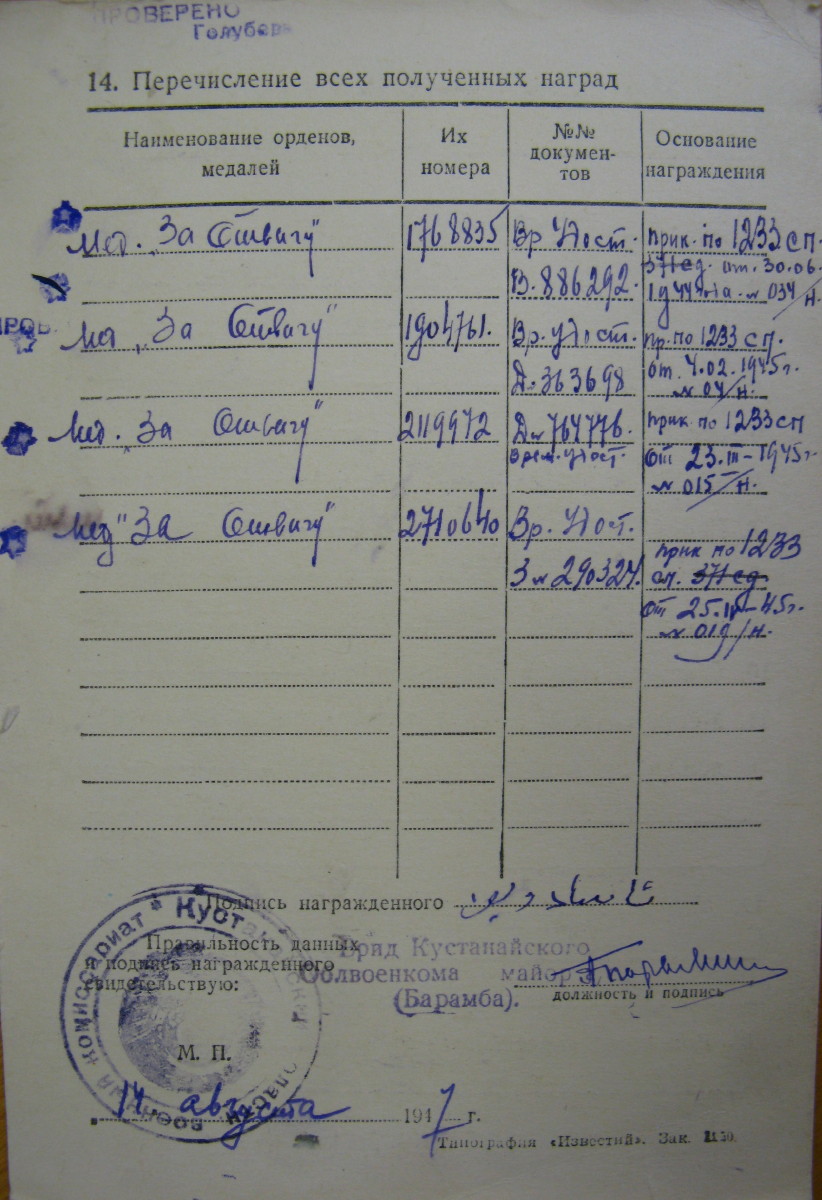 ПРОВЕРЕНО
Голубев
14. Перечисление всех полученных наград
Наименование орденов, медалей
Их номера
№№ докумен-тов
Основание награждения
Мед. „За Отвагу" 1768835 Вр. Удост. прик. по 1233 сп
В. 886292. 371 сд. от. 30.06.
1944 года. № 034/н.
ПРОВ
Мед „За Отвагу" 1904761. Вр. удост. пр. по 1233 сп.
Д. 363698 от. 4.02.1945г.
№ 04/н.
Мед. „За Отвагу" 2119972 Д № 764776. прик. по 1233 сп
Врем. удост. от 23.III-1945г
№ 015/н.
Мед "За Отвагу" 2710640 Вр. Удост. прик по 1233
З № 290327. сп. 371 сд.
от 25.IV-45г.
№ 019/н.
Подпись награжденного
Правильность данных
и подпись награжденного
свидетельствую:
Врид Кустанайского
Облвоенкома майор
(Барамба).
должность и подпись
М. П.
военный комиссариат * Куст
14 августа 1947 г.
Типография «Известий». Зак.